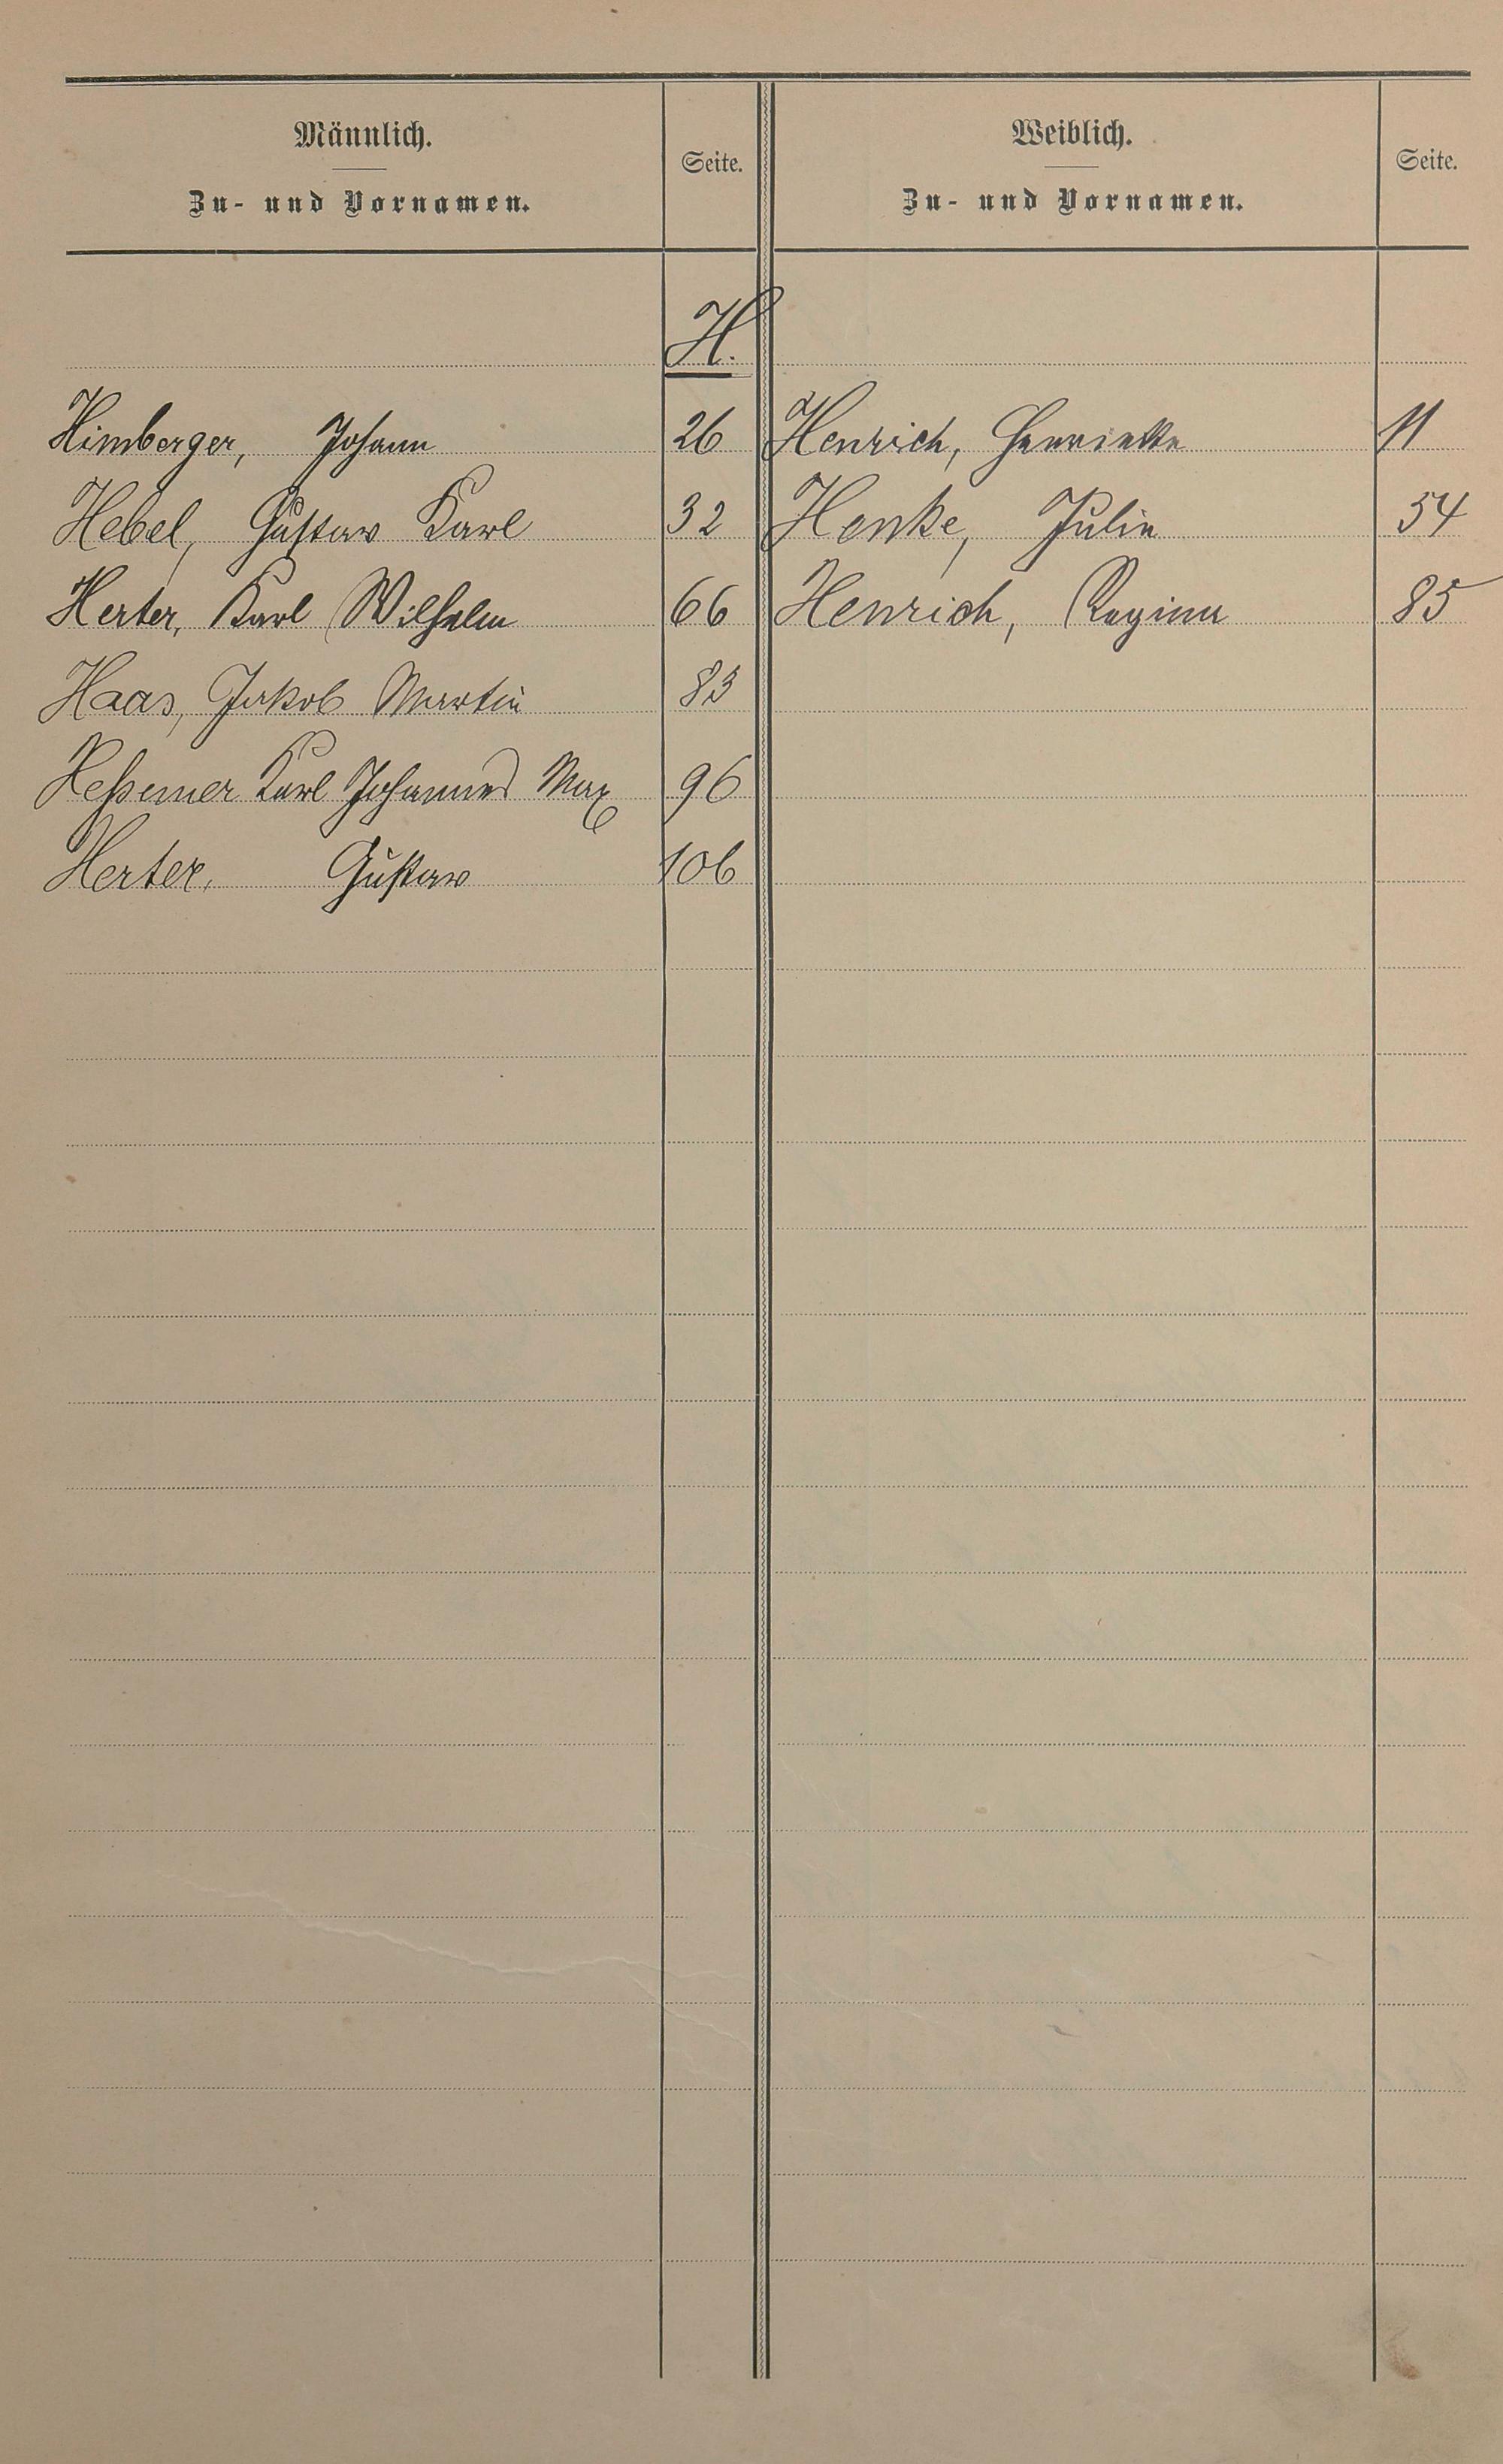 Männlich.
Zu- und Vornamen.
Seite.
Weiblich.
Zu- und Vornamen.
Seite.
H.
Himberger, Johann 26
Hebel, Gustav Karl 32
Herter, Karl Wilhelm 66
Haas, Jakob Martin 83
Heßemer Karl Johannes Max 96
Herter, Gustav 106
Henrich, Henriette 11
Henke, Julie 54
Henrich, Regina 85